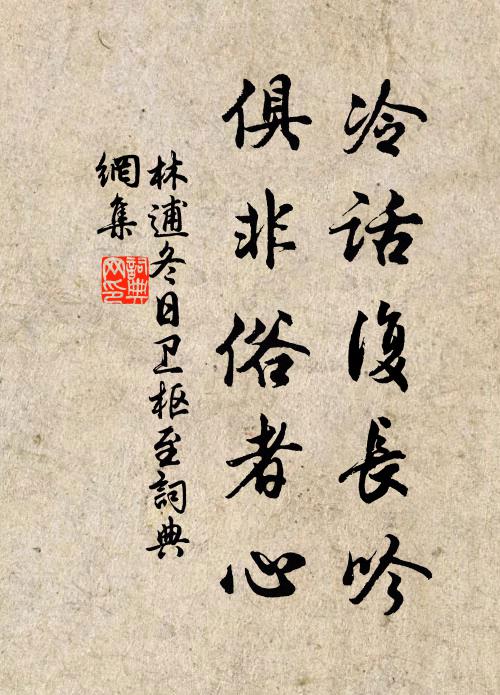 冷话復長吟
俱非俗者心
林逋冬日卫枢至詞典
網集
詞典网印